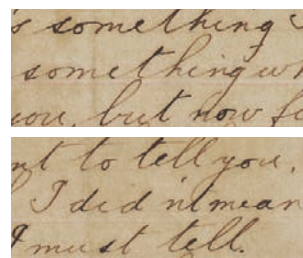 something
something
you, but now
to tell you,
I did n't mean
I must tell.